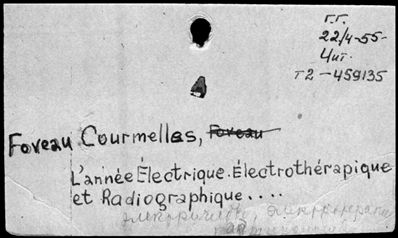 Г.Г.
22/4-55-
Чит.
Т2-459135
Foveau Courmelles, Foveau
L'année Électrique. Électrothérapique
et Radiographique....